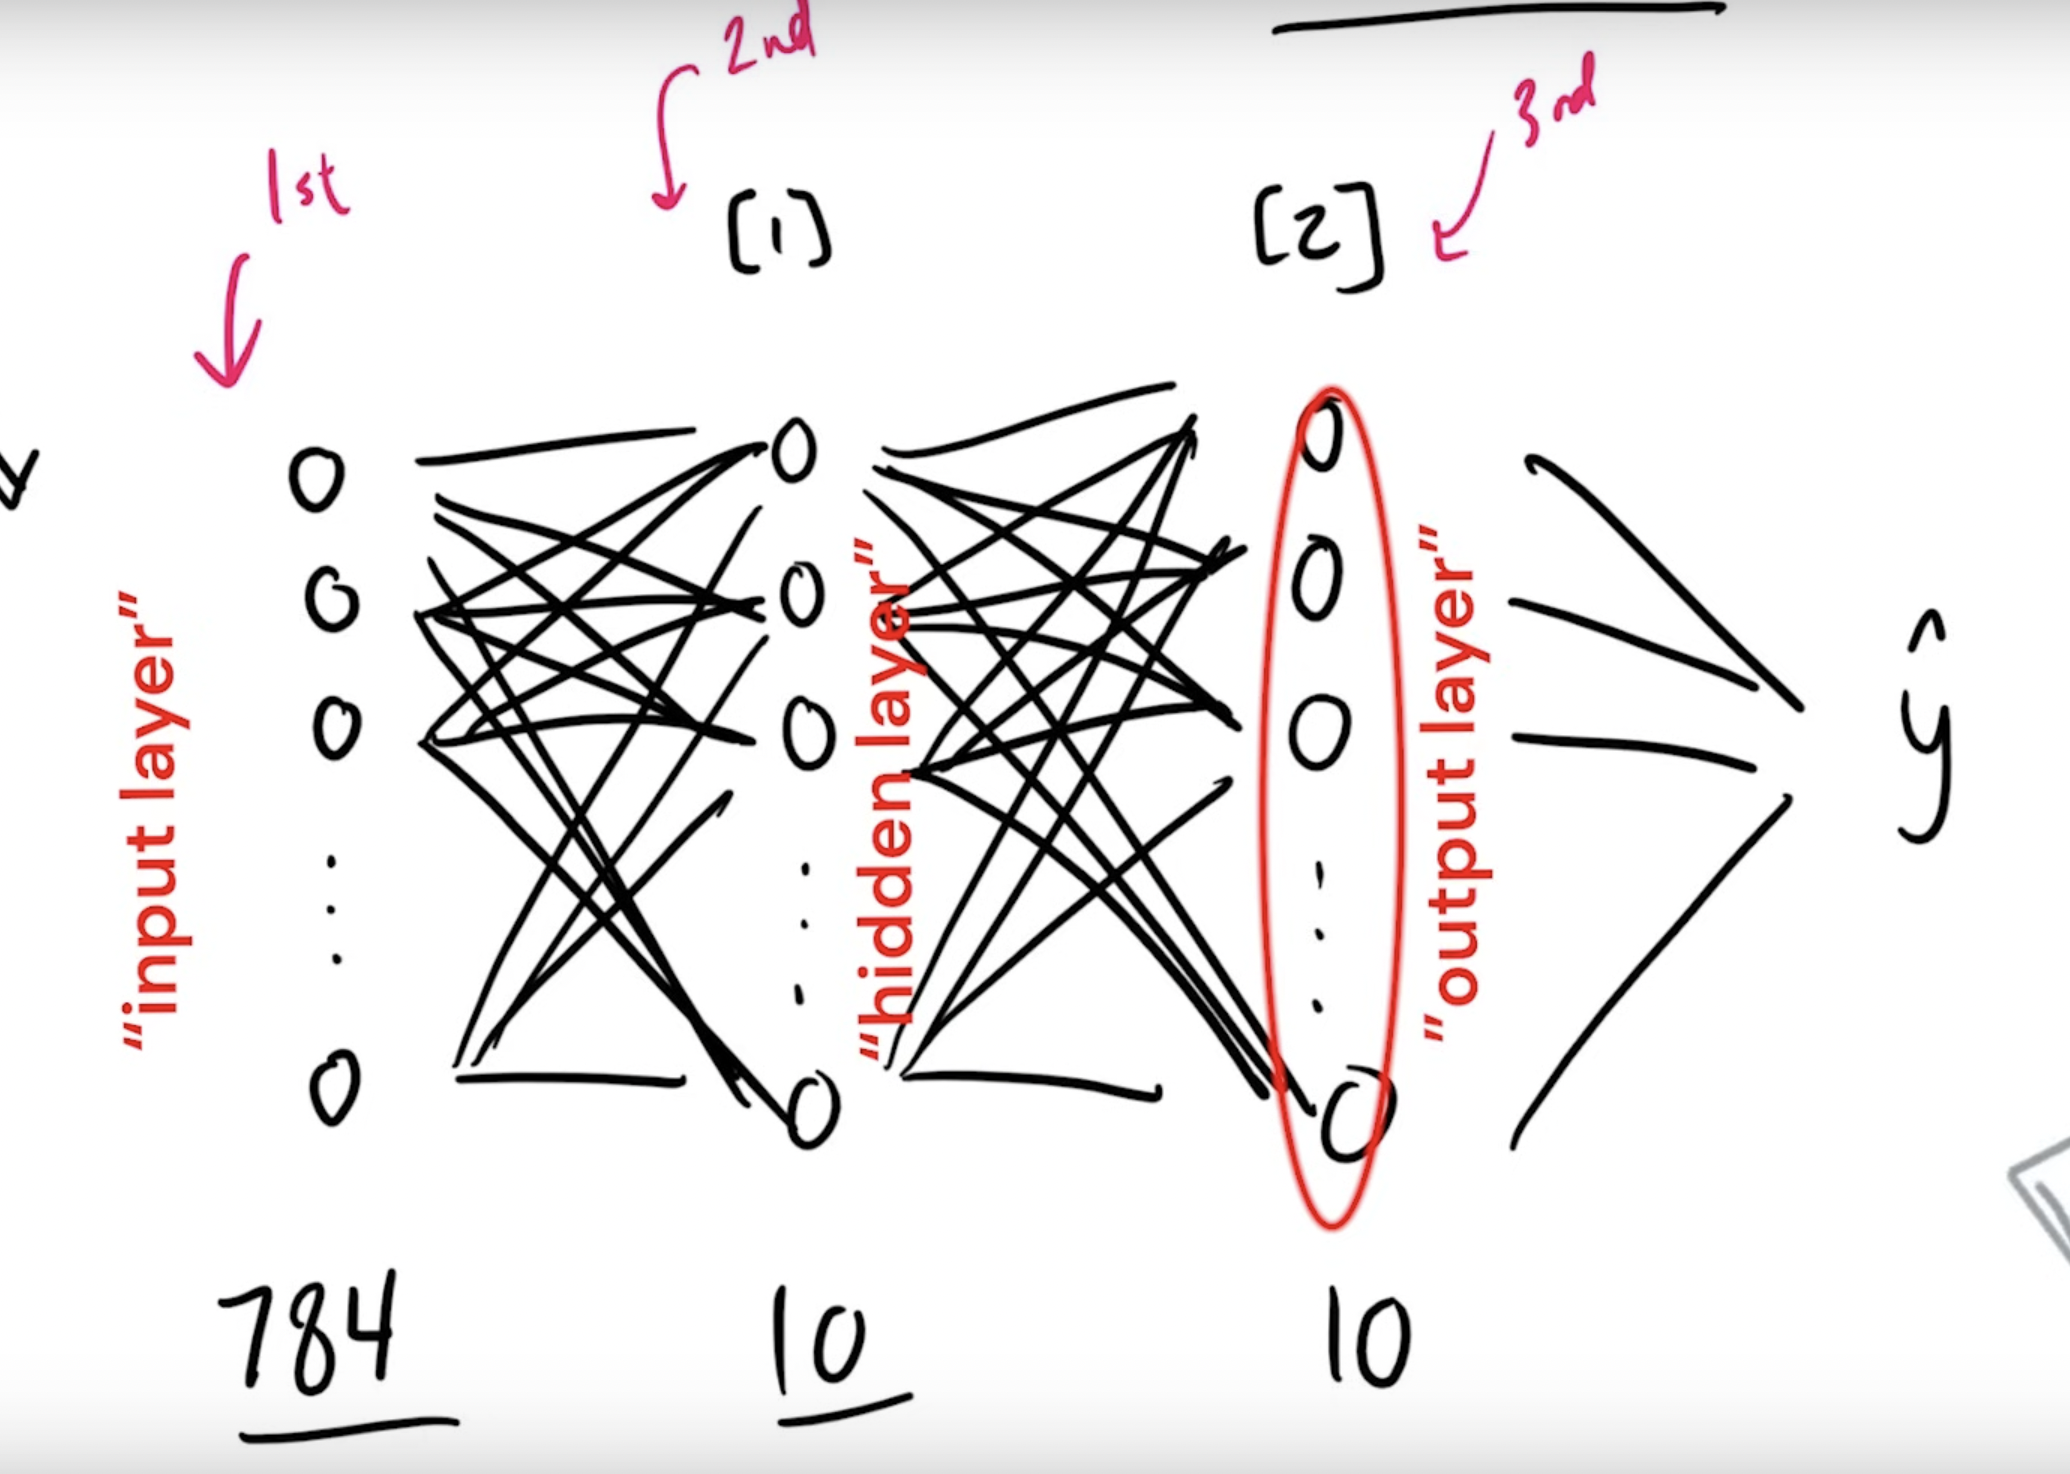 2nd
3rd
1st
[1]
[2]
"input layer"
"hidden layer"
"output layer"
ŷ
784
10
10